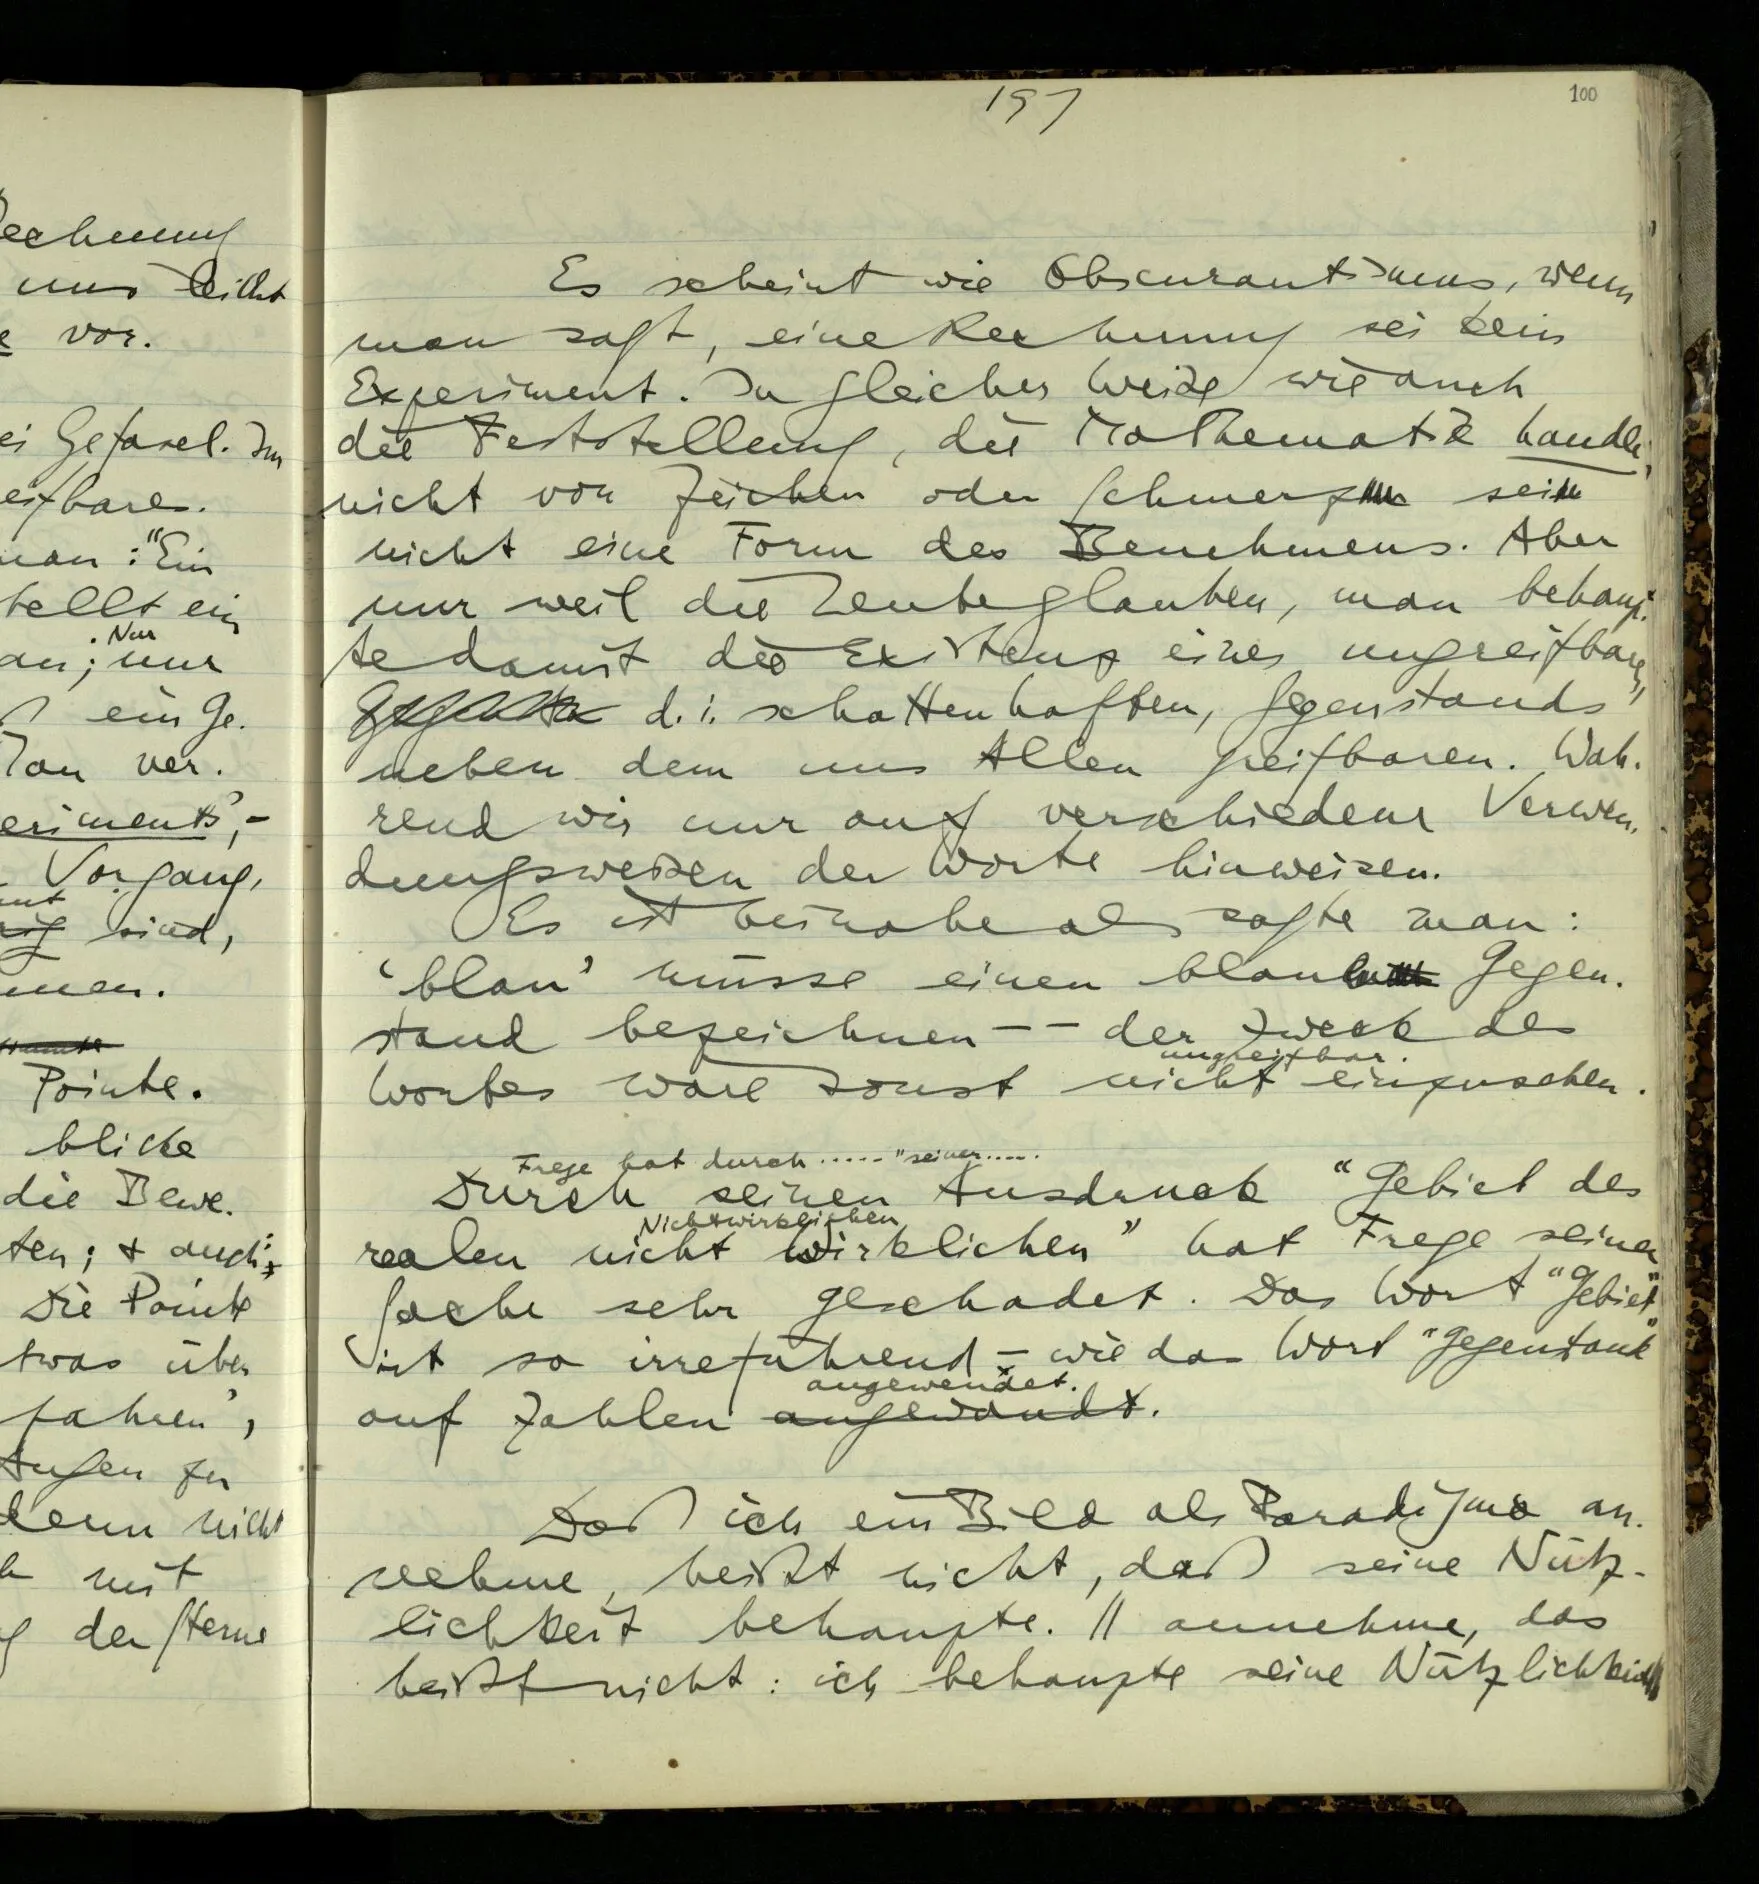 197
100
echnung
uns leicht
vor.
ei Gefasel. Im
eifbares.
man: "Ein
tellt ein
Nur
an; nur
ein Ge-
Man ver-
eriments',-
Vorgang,
sind,
men.
Pointe.
blicke
die Bewe-
ten; & auch
Die Pointe
twas über
fahren',
Augen zu
denn nicht
mit
g der Sterne
Es scheint wie Obscurantismus, wenn
man sagt, eine Rechnung sei kein
Experiment. In gleicher Weise wie auch
die Feststellung, die Mathematik handle
nicht von Zeichen oder Schmerz sei
nicht eine Form des Benehmens. Aber
nur weil die Leute glauben, man behaup-
te damit die Existenz eines ungreifbaren,
d.i. schattenhaften, Gegenstands
neben dem uns Allen greifbaren. Wäh-
rend wir nur auf verschiedene Verwen-
dungsweisen der Worte hinweisen.
Es ist beinahe als sagte man:
'blau' müsse einen blauen Gegen-
stand bezeichnen -- der Zweck des
ungreifbar.
Wortes wäre sonst nicht einzusehen.
Frege hat durch ..... "seiner.....
Durch seinen Ausdruck "Gebiet des
Nichtwirklichen
realen nicht wirklichen" hat Frege seiner
Sache sehr geschadet. Das Wort "Gebiet"
ist so irreführend - wie das Wort "Gegenstand"
angewendet.
auf Zahlen angewandt.
Daß ich ein Bild als Paradigma an-
nehme, heißt nicht, daß seine Nütz-
lichkeit behaupte. // annehme, das
heißt nicht: ich behaupte seine Nützlichkeit //